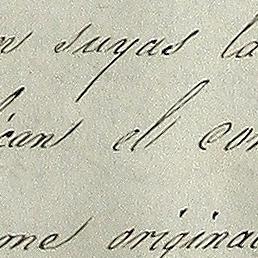 n suyas la
ican el con
me origina